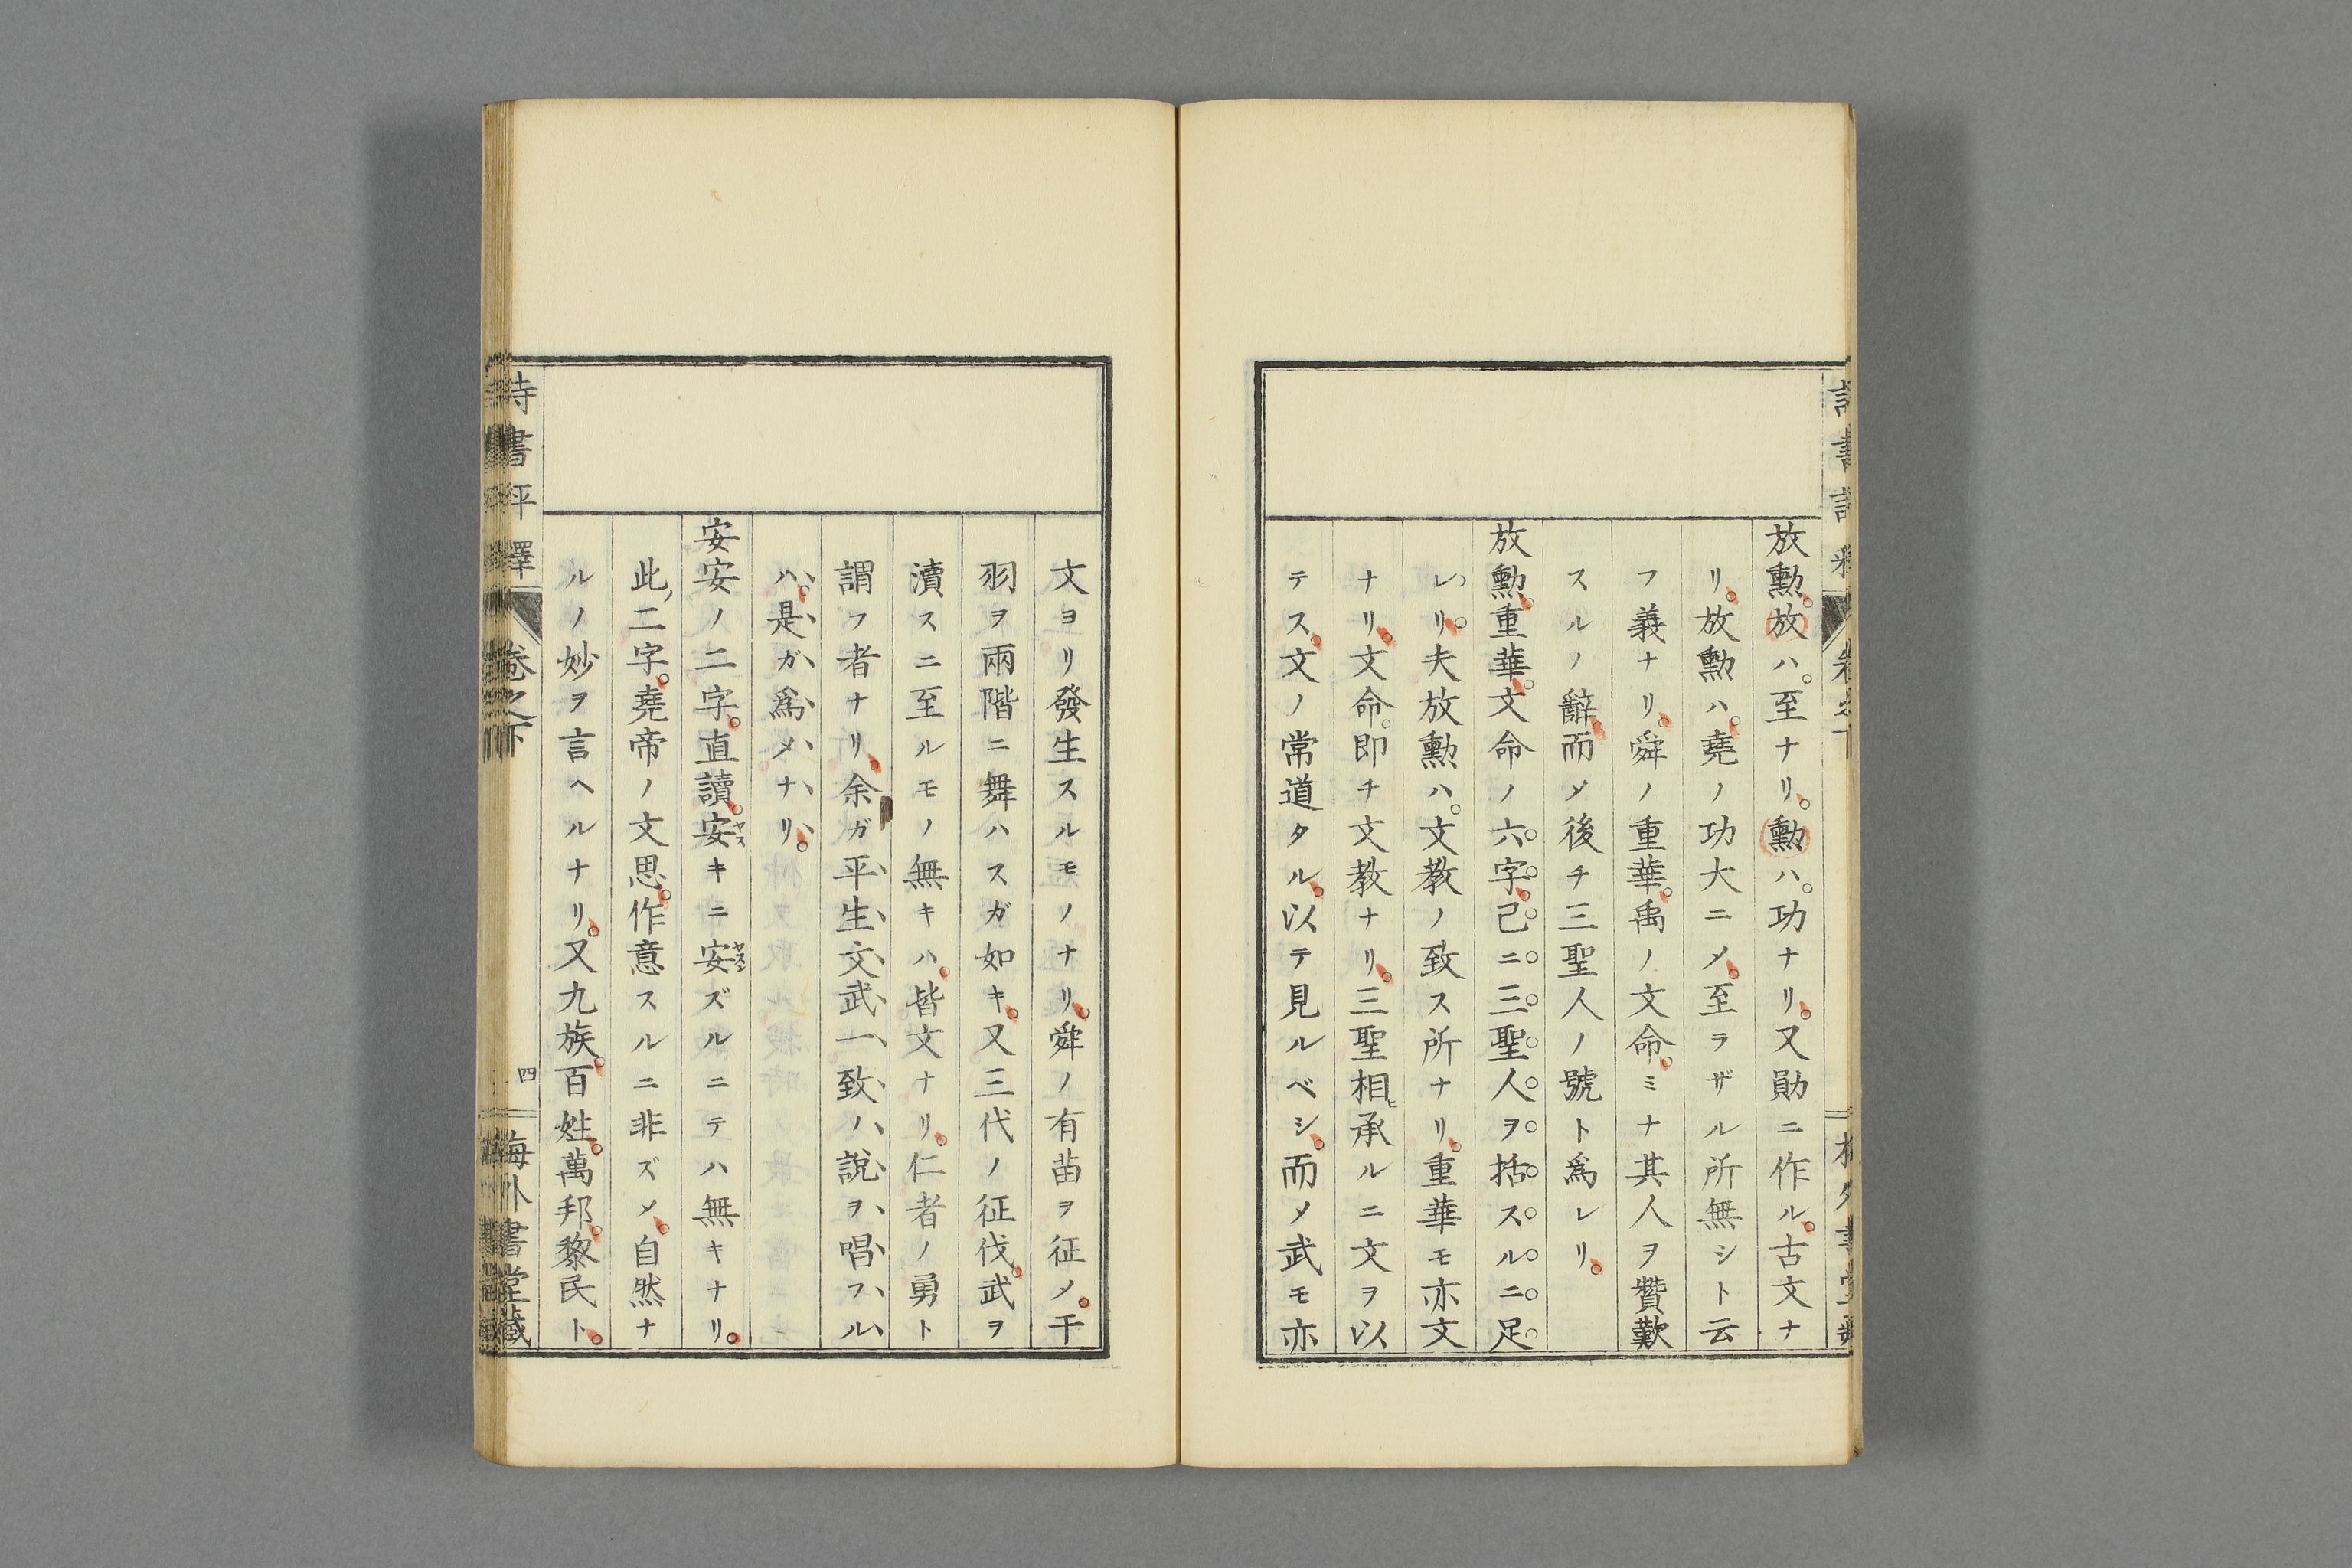 放勲。放ハ。至ナリ。勲ハ。功ナリ。又勛ニ作ル。古文ナ
リ。放勲ハ。堯ノ功大ニメ。至ラザル所無シト云
フ義ナリ。舜ノ重華。禹ノ文命。ミナ其人ヲ贊歎
スルノ辭。而メ後チ三聖人ノ號ト爲レリ。
放勲。重華。文命ノ六字。己ニ三聖人ヲ括スルニ足
レリ。夫放勲ハ。文教ノ致ス所ナリ。重華モ亦文
ナリ。文命。即チ文教ナリ。三聖相ヒ承ルニ文ヲ以
テス。文ノ常道タル。以テ見ルベシ。而メ武モ亦
文ヨリ發生スルモノナリ。舜ノ有苗ヲ征メ。干
羽ヲ兩階ニ舞ハスガ如キ。又三代ノ征伐。武ヲ
瀆スニ至ルモノ無キハ。皆文ナリ。仁者ノ勇ト
謂フ者ナリ。余ガ平生文武一致ノ說ヲ唱フル
ハ。是ガ爲メナリ。
安安ノ二字。直讀。安キニ安ズルニテハ無キナリ。
此ノ二字。堯帝ノ文思。作意スルニ非ズメ。自然ナ
ルノ妙ヲ言ヘルナリ。又九族。百姓。萬邦。黎民ト。
詩書評釋
卷之下
四
梅外書堂藏